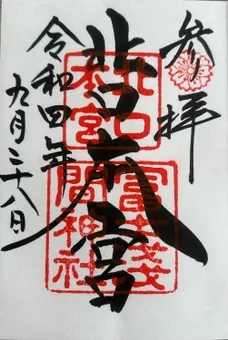 参拝
北口本宮
北口
本宮
冨士淺
間神社
令和四年
九月二十八日